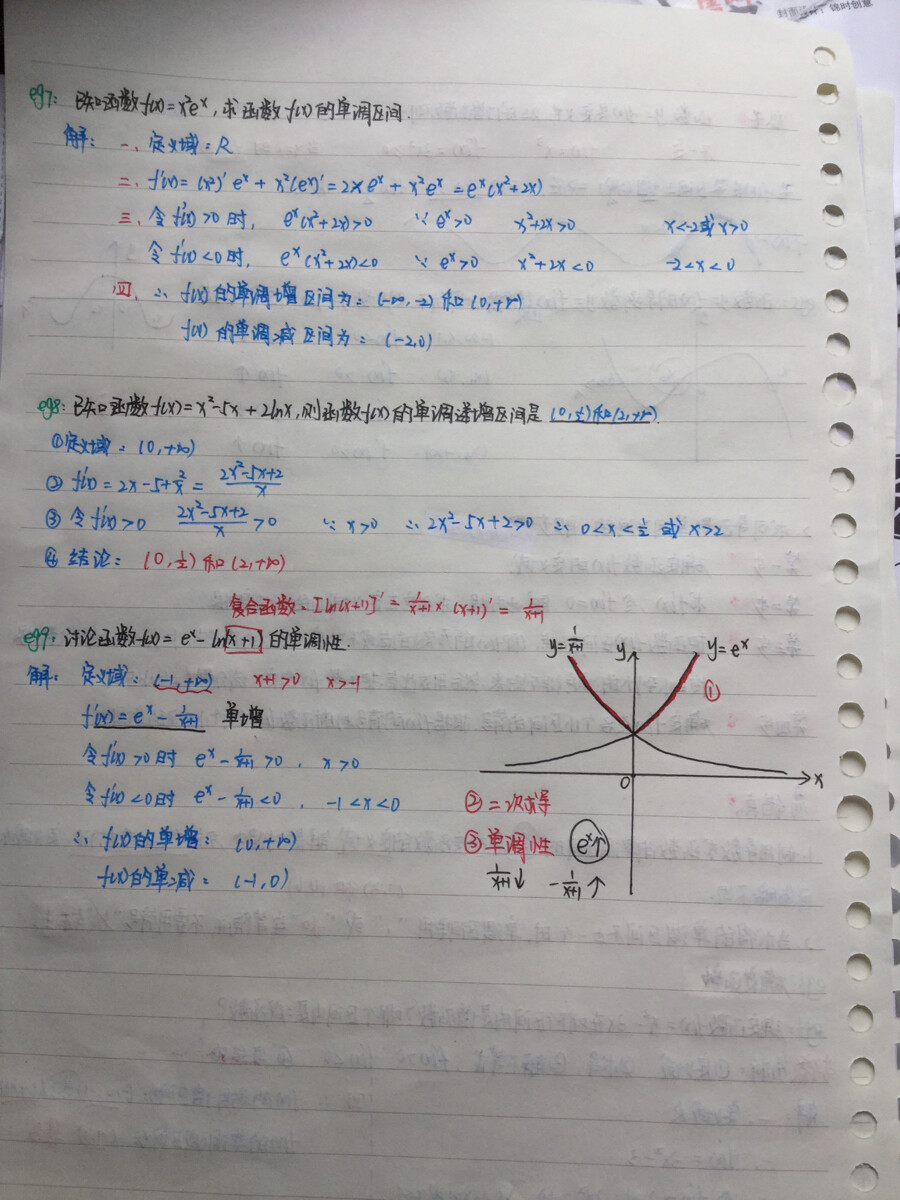 封面设计:锦时创意
eg7: 已知函数f(x)=x²eˣ,求函数f(x)的单调区间.
解: 一、定义域:R
二、f'(x)=(x²)'eˣ+x²(eˣ)'=2xeˣ+x²eˣ=eˣ(x²+2x)
三、令f'(x)>0时, eˣ(x²+2x)>0 ∵eˣ>0 x²+2x>0 x<-2或x>0
令f'(x)<0时, eˣ(x²+2x)<0 ∵eˣ>0 x²+2x<0 -2<x<0
四、∴f(x)的单调增区间为:(-∞,-2)和(0,+∞)
f(x)的单调减区间为:(-2,0)
eg8: 已知函数f(x)=x²-5x+2lnx,则函数f(x)的单调递增区间是(0,1/2)和(2,+∞).
①定义域:(0,+∞)
②f'(x)=2x-5+2/x=(2x²-5x+2)/x
③令f'(x)>0 (2x²-5x+2)/x>0 ∵x>0 ∴2x²-5x+2>0 ∴0<x<1/2或x>2
④结论: (0,1/2)和(2,+∞)
复合函数:[ln(x+1)]'=1/(x+1)×(x+1)'=1/(x+1)
eg9: 讨论函数f(x)=eˣ-ln(x+1)的单调性.
解: 定义域:(-1,+∞) x+1>0 x>-1
f'(x)=eˣ-1/(x+1) 单增
令f'(x)>0时 eˣ-1/(x+1)>0, x>0
令f'(x)<0时 eˣ-1/(x+1)<0, -1<x<0
∴f(x)的单增:(0,+∞)
f(x)的单减:(-1,0)
y=1/(x+1) y y=eˣ
①
0 x
②二次求导
③单调性 eˣ↑
1/(x+1)↓ -1/(x+1)↑